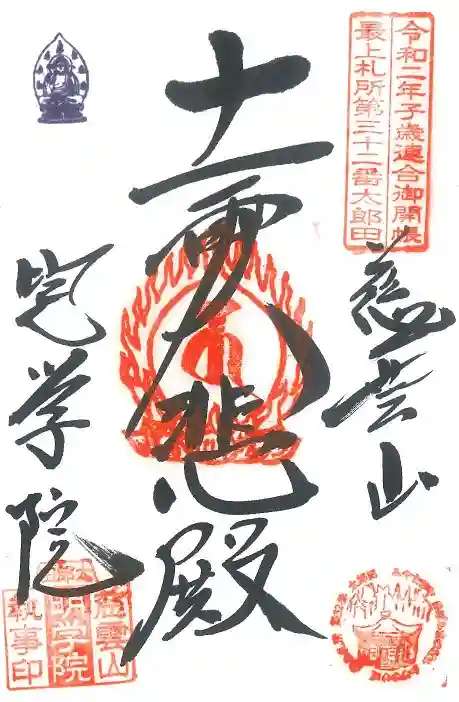 令和二年子歳連合御開帳
最上札所第三十二番太郎田
慈雲山
十一面大悲殿
明学院
慈雲山
明学院
執事印